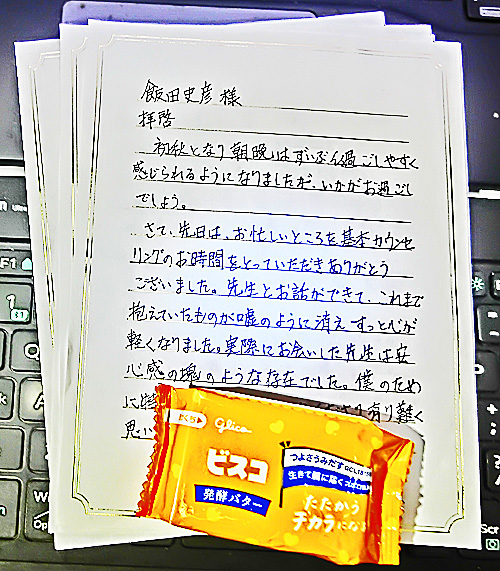 飯田史彦 様
拝啓
初秋となり朝晩はずいぶん過ごしやすく
感じられるようになりましたが、いかがお過ごし
でしょう。
さて、先日は、お忙しいところを基本カウンセ
リングのお時間をとっていただきありがとう
ございました。先生とお話ができて、これまで
抱えていたものが嘘のように消え すっと心が
軽くなりました。実際にお会いした先生は安
心感の塊のような存在でした。僕のため
に
有り難く
思い
glico
ビスコ
発酵バター
つよさうみだす
生きて腸に届く
たたかう
チカラに
F1
1
Q
A